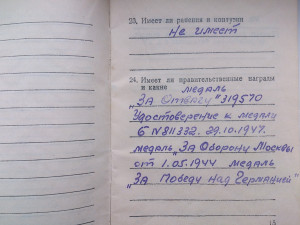 23. Имеет ли ранения и контузии
Не имеет
24. Имеет ли правительственные награды
и какие медаль
„За Отвагу" 319570
Удостоверение к медали
Б №811332. 29.10.1947.
медаль „За Оборону Москвы
от 1.05.1944 медаль
„За Победу над Германией"